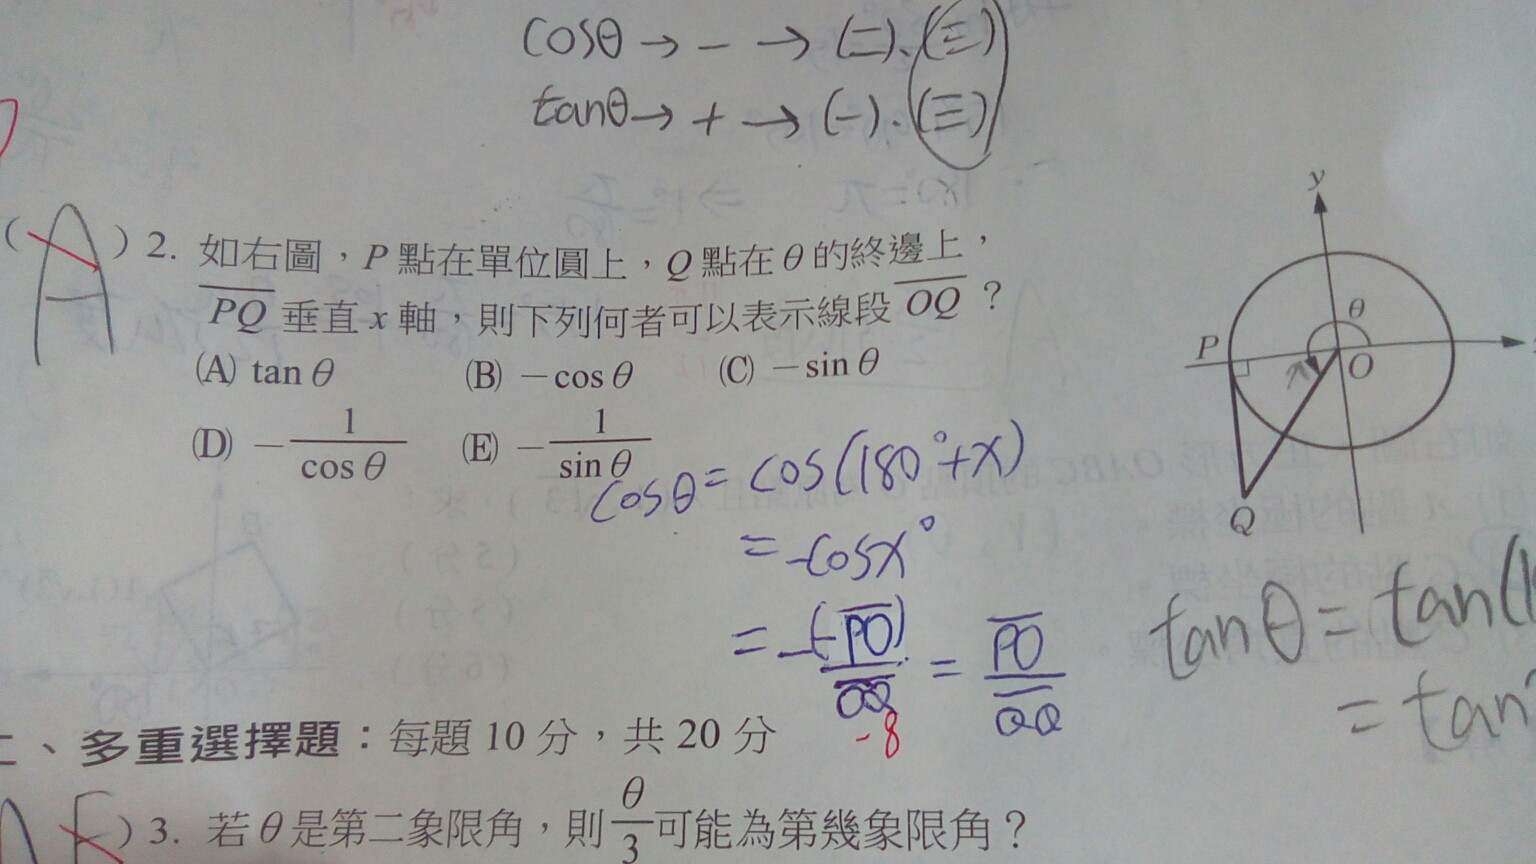 cosθ → − → (二).(三)
tanθ → + → (一).(三)
(A) 2. 如右圖，P 點在單位圓上，Q 點在 θ 的終邊上，
PQ 垂直 x 軸，則下列何者可以表示線段 OQ ？
(A) tan θ (B) −cos θ (C) −sin θ
(D) −1/cos θ (E) −1/sin θ
y
θ
P
O
Q
cosθ = cos(180°+x)
= -cosx°
= -(-PO)/OQ = PO/OQ
-8
tanθ = tan(1
= tan
、多重選擇題：每題 10 分，共 20 分
) 3. 若 θ 是第二象限角，則 θ/3 可能為第幾象限角？